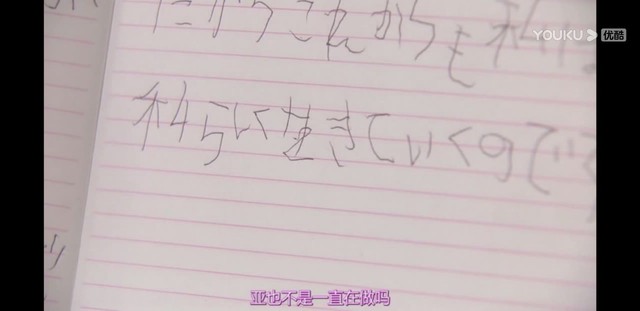 だからこれからも私は
YOUKU 优酷
私らしく生きていくので
亚也不是一直在做吗